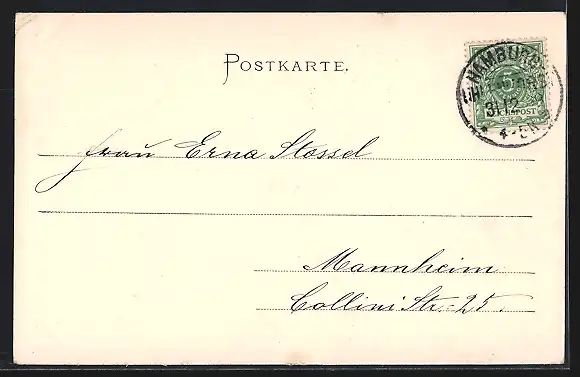 POSTKARTE.
HAMBURG
5
31 12
REICHSPOST
4-5N
Frau Erna Stossel
Mannheim
Collini Str. 25.